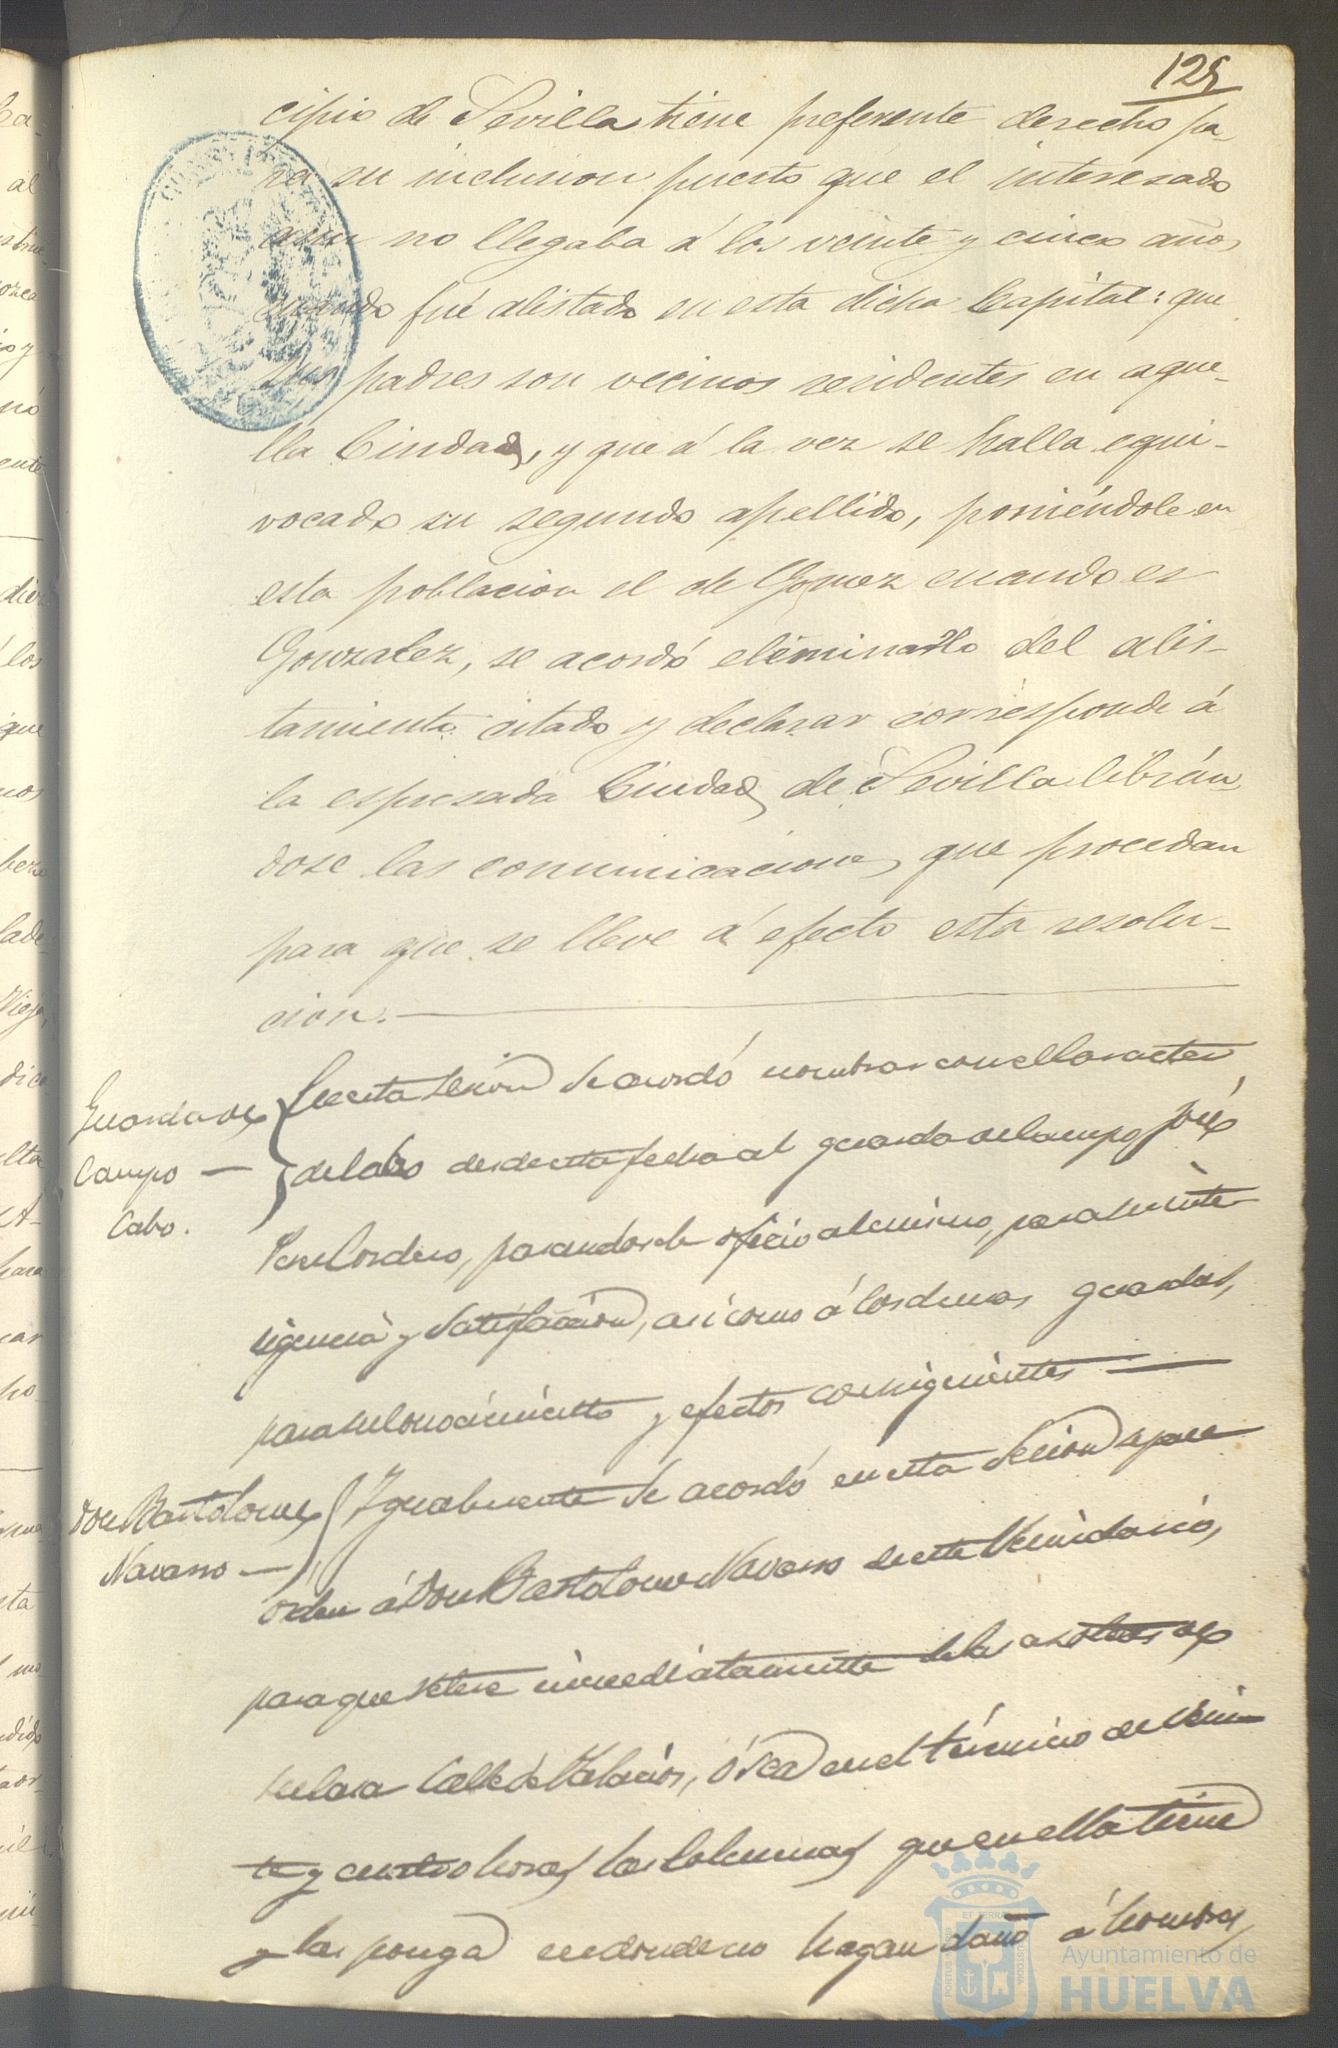 125
cipio de Sevilla tiene preferente derecho pa-
ra su inclusion puesto que el interesado
aun no llegaba á los veinte y cinco años
cuando fué alistado en esta dicha Capital: que
sus padres son vecinos residentes en aque-
lla Ciudad, y que á la vez se halla equi-
vocado su segundo apellido, poniéndole en
esta poblacion el de Gomez cuando es
Gonzalez, se acordó eliminarlo del alis-
tamiento citado y declarar corresponde á
la espresada Ciudad de Sevilla librán
dose las comunicaciones que procedan
para que se lleve á efecto esta resolu-
cion.
Guarda de
Campo
Cabo.
En esta sesion se acordó nombrar con el caracter
de Cabo desde esta fecha al guarda de campo José
Cordero, pasandosele oficio al mismo, para su inte-
ligencia y satisfaccion, asi como á los demas guardas,
para su conocimiento y efectos consiguientes
Don Bartolome
Navarro
Igualmente se acordó en esta Sesion se pase
orden á Don Bartolome Navarro de esta Vecindario,
para que retire inmediatamente de las
su casa Calle de Palacios, ó sea en el término de vein-
te y cuatro horas las Colmenas que en ella tiene
y las ponga en donde no hagan daño á hombres
Ayuntamiento de
HUELVA